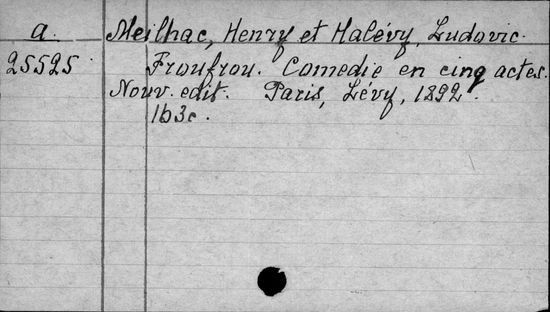 a. Meilhac, Henry et Halévy, Ludovic.
25525 Froufrou. Comedie en cinq actes.
Nouv. edit. Paris, Lévy, 1892.
163c.